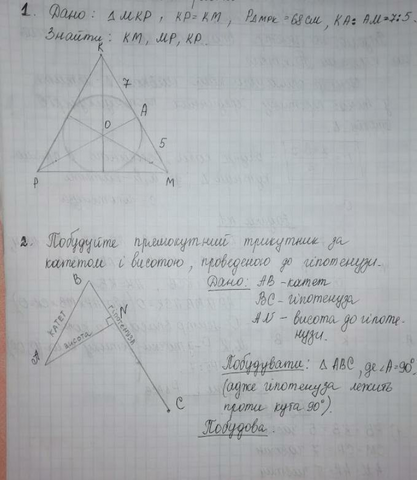 1. Дано: Δ MKP, KP = KM, PΔMPK = 68 см, KA : AM = 7:5.
Знайти: KM, MP, KP.
K
7
A
O
5
P
M
2. Побудуйте прямокутний трикутник за
катетом і висотою, проведеною до гіпотенузи.
Дано: AB - катет
BC - гіпотенуза
AN - висота до гіпоте-
нузи.
B
КАТЕТ
N
гіпотенуза
висота
A
C
Побудувати: Δ ABC, де ∠A = 90°
(адже гіпотенуза лежить
проти кута 90°).
Побудова: